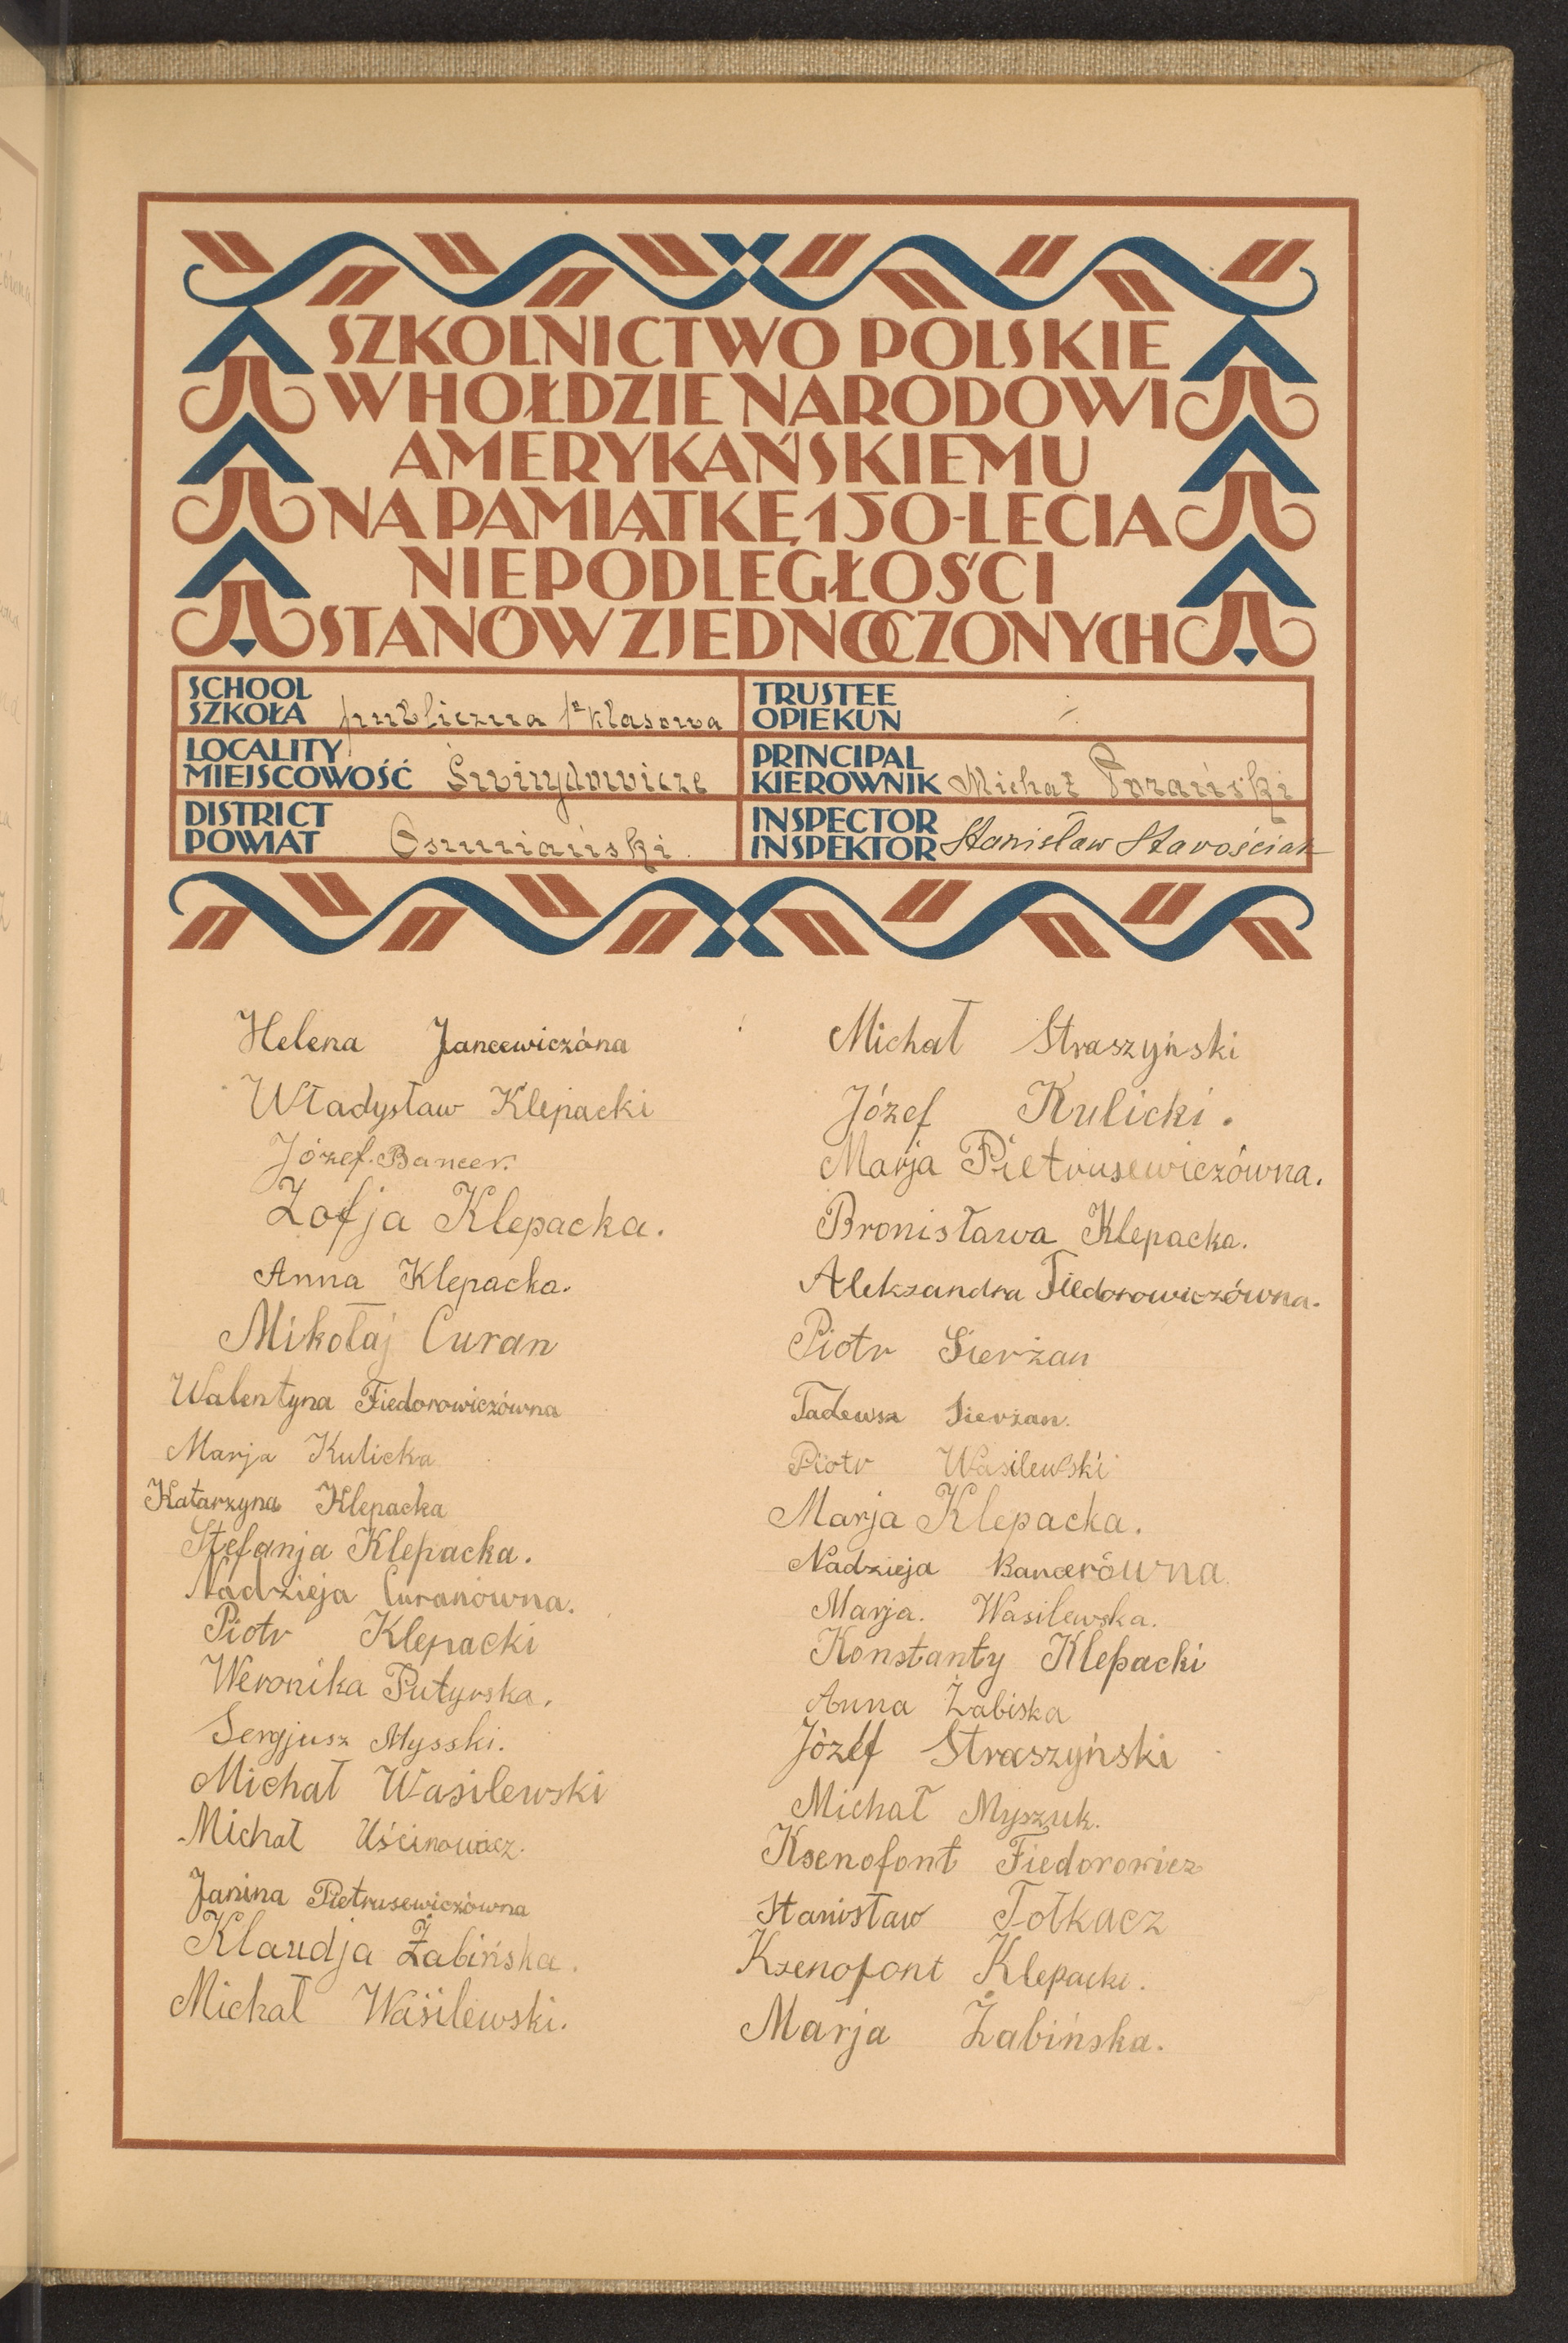 SZKOLNICTWO POLSKIE
W HOŁDZIE NARODOWI
AMERYKAŃSKIEMU
NA PAMIĄTKĘ 150-LECIA
NIEPODLEGŁOŚCI
STANÓW ZJEDNOCZONYCH
SCHOOL
SZKOŁA publiczna 1ª klasowa
LOCALITY
MIEJSCOWOŚĆ Świrydowicze
DISTRICT
POWIAT Oszmiański
TRUSTEE
OPIEKUN
PRINCIPAL
KIEROWNIK Michał
INSPECTOR
INSPEKTOR Stanisław Starościak
Helena Jancewiczóna
Władysław Klepacki
Józef Bancer.
Zofja Klepacka.
Anna Klepacka.
Mikołaj Curan
Walentyna Fiedorowiczówna
Marja Kulicka
Katarzyna Klepacka
Stefanja Klepacka.
Nadzieja Curanówna.
Piotr Klepacki
Weronika Putyrska.
Sergjusz Mysski.
Michał Wasilewski
Michał Uścinowicz.
Janina Pietrusewiczówna
Klaudja Żabińska.
Michał Wasilewski.
Michał Straszyński
Józef Kulicki.
Marja Pietrusewiczówna.
Bronisława Klepacka.
Aleksandra Fiedorowiczówna.
Piotr Sierżan
Tadeusz Sierżan.
Piotr Wasilewski
Marja Klepacka.
Nadzieja Bancerówna
Marja. Wasilewska.
Konstanty Klepacki
Anna Żabiska
Józef Straszyński
Michał Myszuk.
Ksenofont Fiedorowicz
Stanisław Tołkacz
Ksenofont Klepacki.
Marja Żabińska.